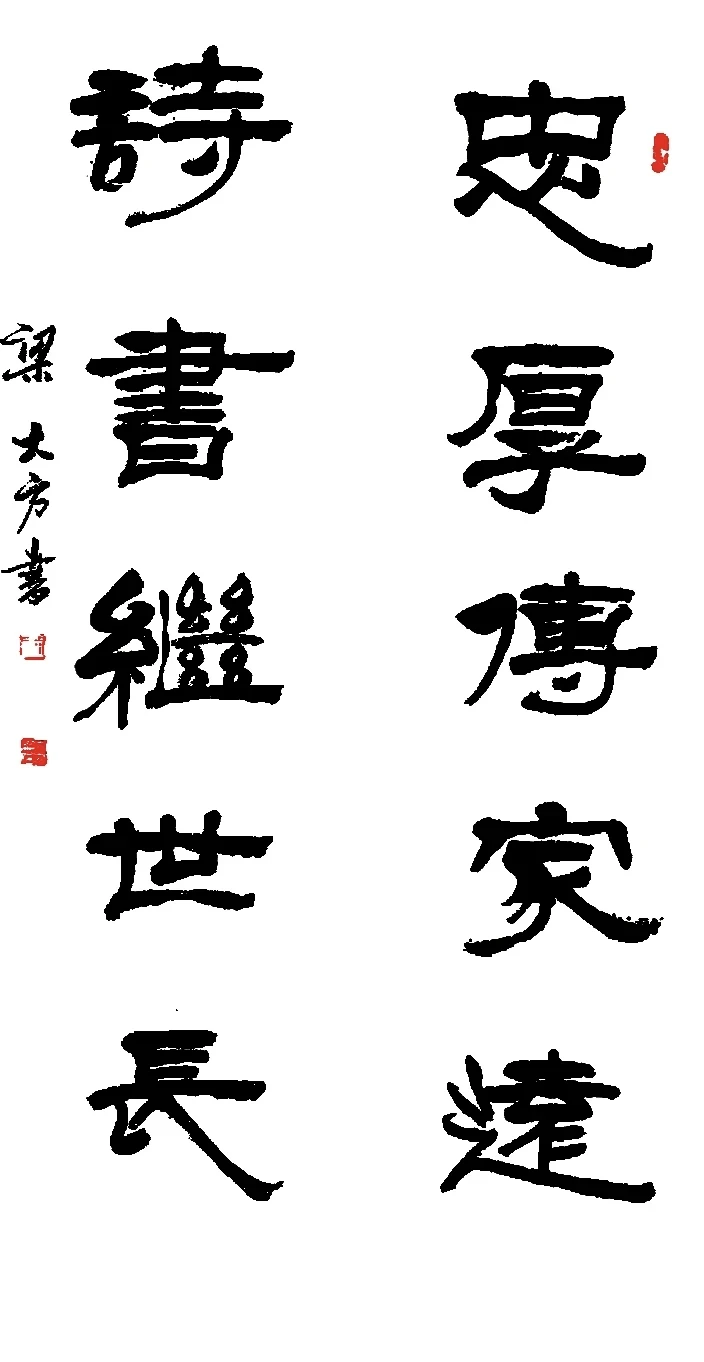 忠厚傳家遠
詩書繼世長
梁大方書